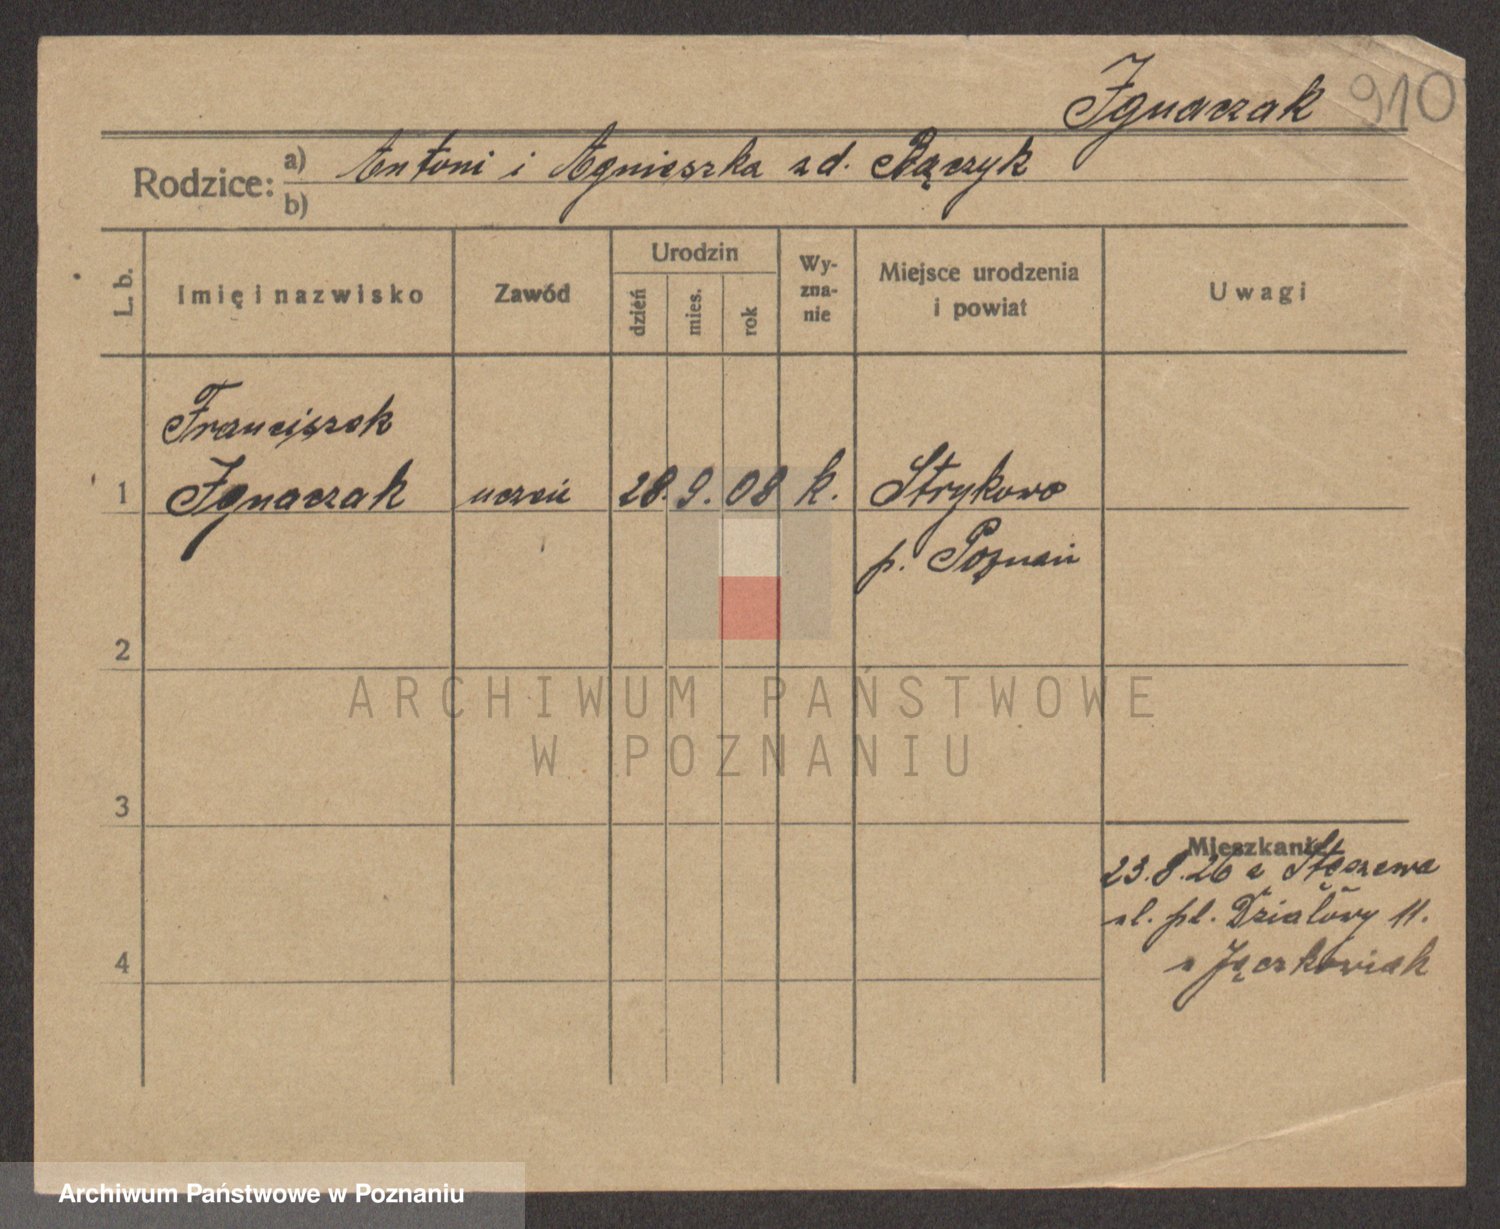 Ignaczak 910
Rodzice: a) Antoni i Agnieszka zd. Bączyk
b)
L. b.
Imię i nazwisko
Zawód
Urodzin
dzień
mies.
rok
Wy-
zna-
nie
Miejsce urodzenia
i powiat
Uwagi
Franciszek
1 Ignaczak uczeń 28. 9. 08 k. Strykowo
p. Poznań
2
ARCHIWUM PAŃSTWOWE
W POZNANIU
3
Mieszkanie
23.8.26 z Stęszewa
pl. Działowy 11.
4
Archiwum Państwowe w Poznaniu